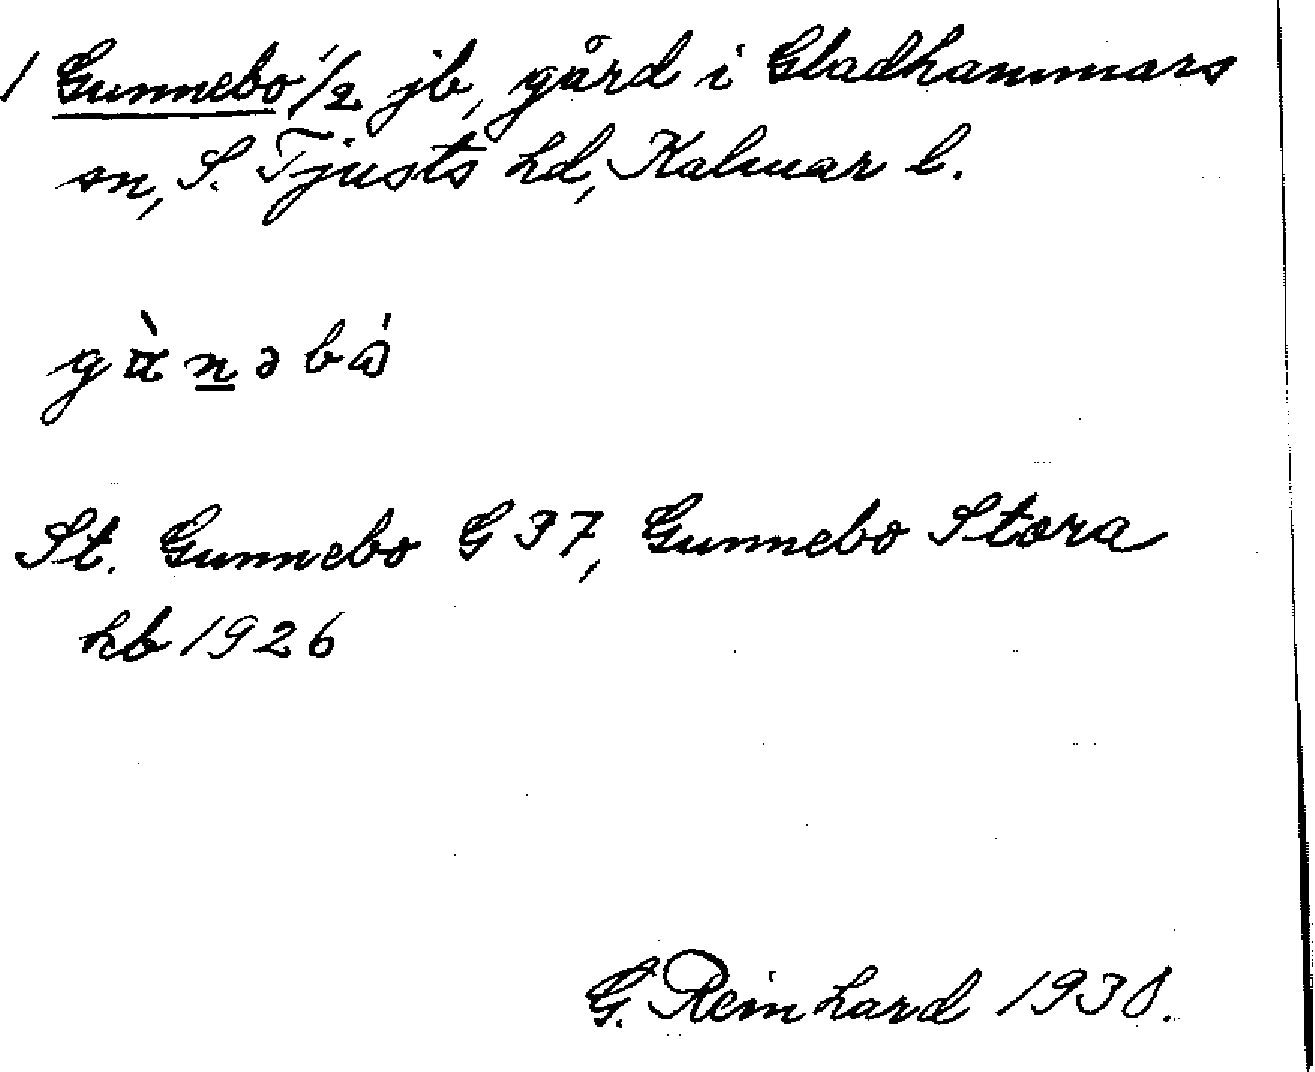 1 Gunnebo 1/2 jb, gård i Gladhammars
sn, S. Tjusts hd, Kalmar l.
St. Gunnebo G 37, Gunnebo Stora
hb 1926
G. Reinhard 1938.